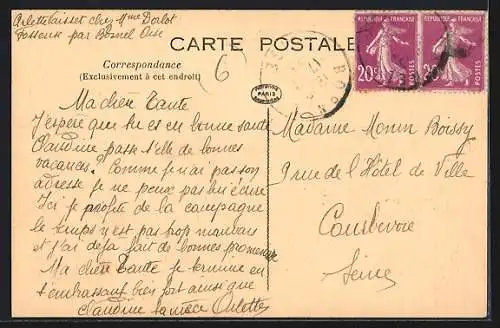 chez Mme Dorlot
Fosseuse par Bornel Oise
CARTE POSTALE
Correspondance
(Exclusivement à cet endroit)
6
RÉPUBLIQUE FRANÇAISE
20c
POSTES
RÉPUBLIQUE FRANÇAISE
20c
POSTES
PARIS
Ma chère Tante
J'espère que tu es en bonne santé
Claudine passe t'elle de bonnes
vacances? Comme je n'ai pas son
adresse je ne peux pas lui écrire
Ici je profite de la campagne
le temps n'y est pas trop mauvais
et j'ai déjà fait de bonnes promenades
Ma chère Tante je termine en
t'embrassant bien fort ainsi que
Claudine ta nièce Arlette
Madame Monin Boissy
9 rue de l'Hôtel de Ville
Courbevoie
Seine